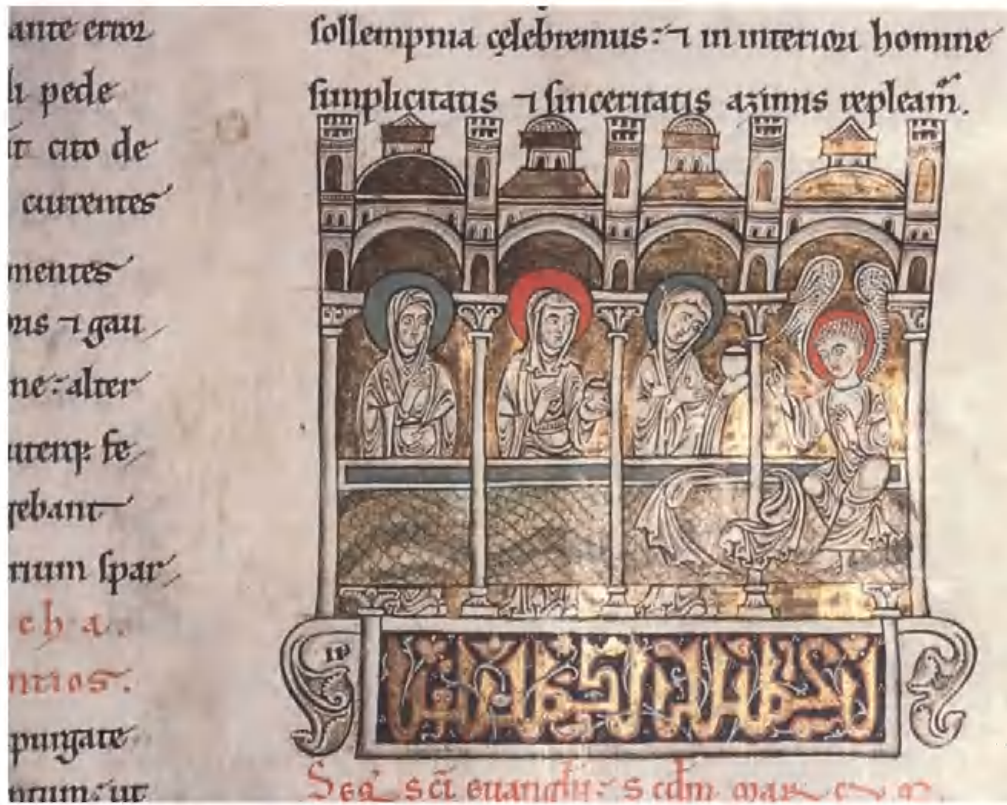 ante error
li pede
it cito de
currentes
mentes
⁊ gau
ne: alter
fe
gebant
rium spar
cha.
ntios.
purgate
ntium: ut
sollempnia cęlebremus: ⁊ in interiori homine
simplicitatis ⁊ sinceritatis azimis repleam̄.
Seq̄ sc̄i euanḡlii: s cdm mar